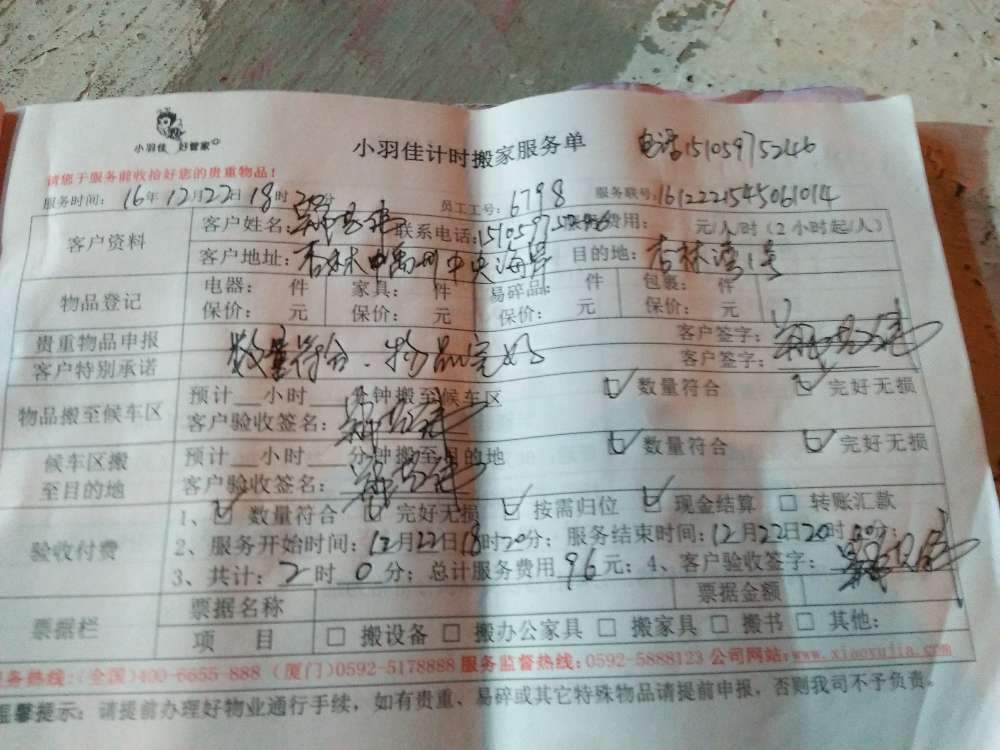 小羽佳 好管家
小羽佳计时搬家服务单 电话15105975246
请您于服务前收拾好您的贵重物品！
服务时间：16年12月22日18时20分 员工工号：6798 服务联号：1612221545061014
客户资料 客户姓名： 联系电话： 费用： 元/人/时（2小时起/人）
客户地址：杏林中禹州中央海岸 目的地：杏林湾1号
物品登记 电器： 件 家具： 件 易碎品： 件 包裹： 件
保价： 元 保价： 元 保价： 元 保价： 元
贵重物品申报 客户签字：
客户特别承诺 数量符合、物品完好 客户签字：
物品搬至候车区 预计__小时__分钟搬至候车区 ☑ 数量符合 ☑ 完好无损
客户验收签名：
候车区搬至目的地 预计__小时__分钟搬至目的地 ☑ 数量符合 ☑ 完好无损
客户验收签名：
验收付费 1、☑ 数量符合 ☑ 完好无损 ☑ 按需归位 ☑ 现金结算 □ 转账汇款
2、服务开始时间：12月22日18时20分；服务结束时间：12月22日20时 分；
3、共计：2时0分；总计服务费用96元；4、客户验收签字：
票据栏 票据名称 票据金额
项 目 □ 搬设备 □ 搬办公家具 □ 搬家具 □ 搬书 □ 其他：
服务热线：（全国）400-6655-888（厦门）0592-5178888 服务监督热线：0592-5888123 公司网站：www.xiaoyujia.com
温馨提示：请提前办理好物业通行手续，如有贵重、易碎或其它特殊物品请提前申报，否则我司不予负责。